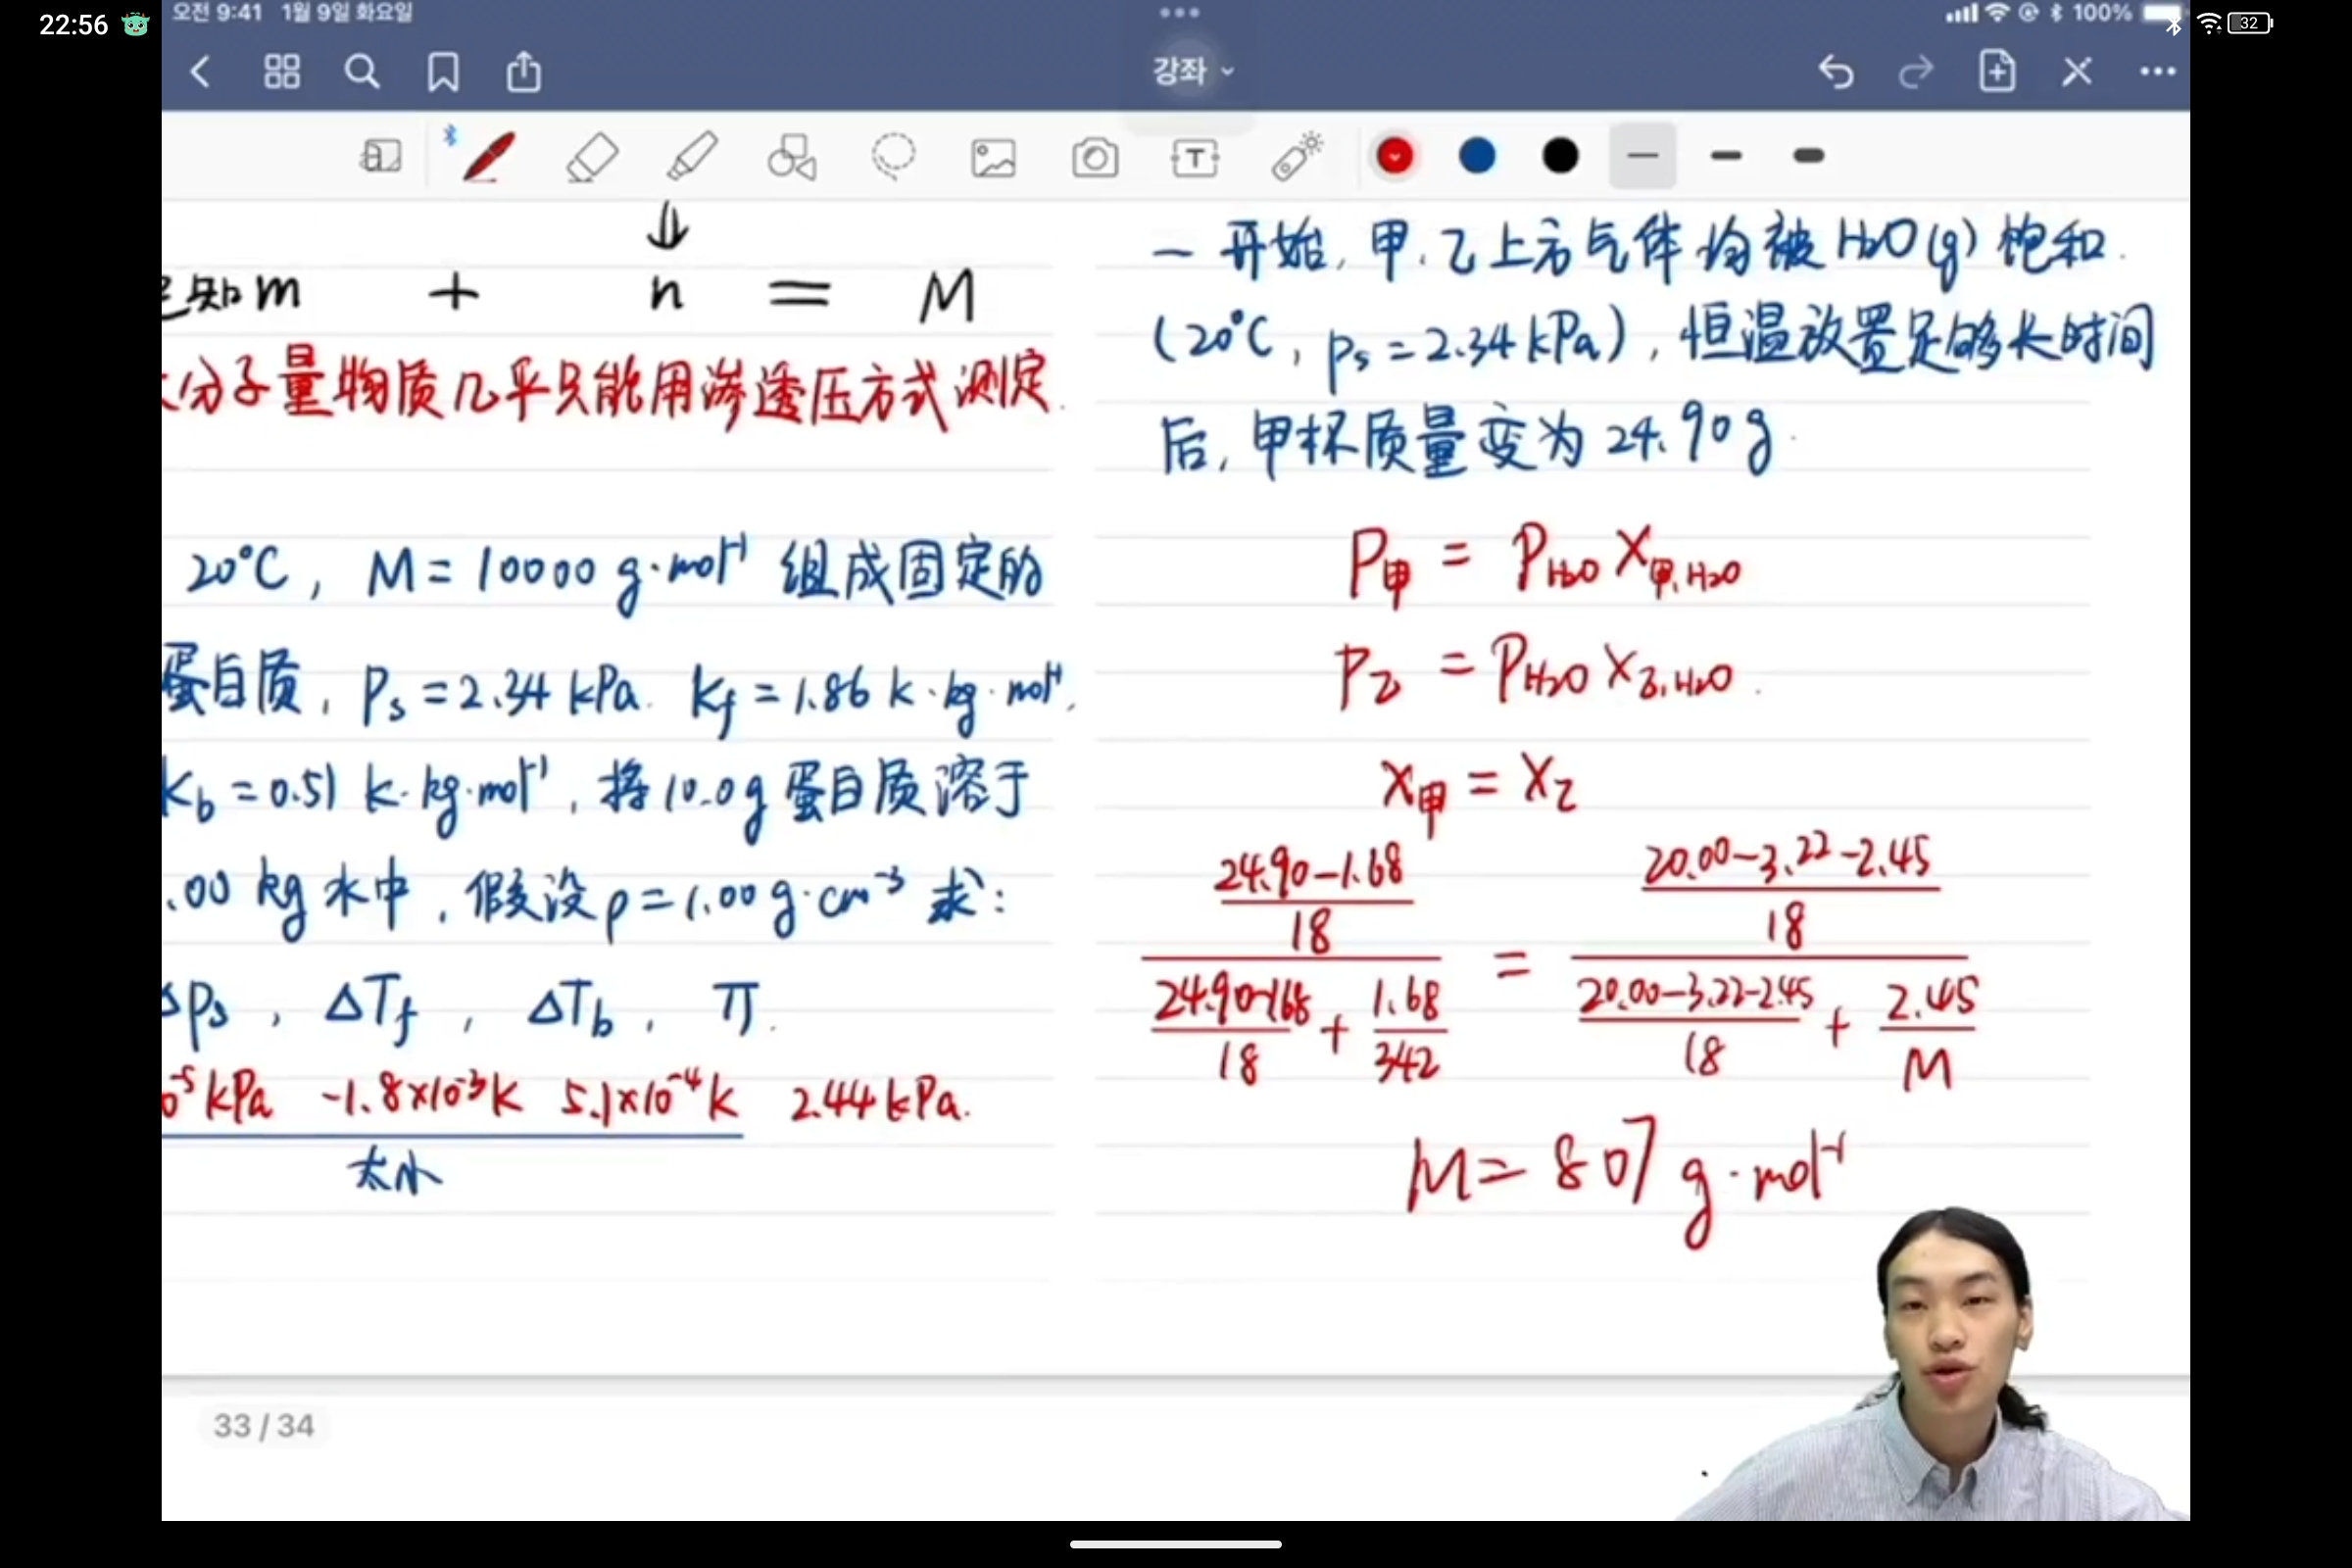 22:56
32
오전 9:41 1월 9일 화요일
100%
강좌
T
已知 m + n = M
分子量物质几乎只能用渗透压方式测定.
20°C, M = 10000 g·mol⁻¹ 组成固定的
蛋白质, Ps = 2.34 kPa. Kf = 1.86 K·kg·mol⁻¹,
Kb = 0.51 K·kg·mol⁻¹, 将10.0g 蛋白质溶于
.00 kg 水中, 假设 ρ = 1.00 g·cm⁻³ 求:
ΔPs, ΔTf, ΔTb, π.
0⁻⁵ kPa -1.8×10⁻³K 5.1×10⁻⁴K 2.44 kPa.
太小
一开始, 甲、乙上方气体均被 H₂O(g) 饱和.
(20°C, Ps = 2.34 kPa), 恒温放置足够长时间
后, 甲杯质量变为 24.90g.
P甲 = PH₂O X甲,H₂O
P乙 = PH₂O X乙,H₂O.
X甲 = X乙
24.90-1.68 20.00-3.22-2.45
18 18
=
24.90-1.68 + 1.68 20.00-3.22-2.45 + 2.45
18 342 18 M
M = 807 g·mol⁻¹
33 / 34